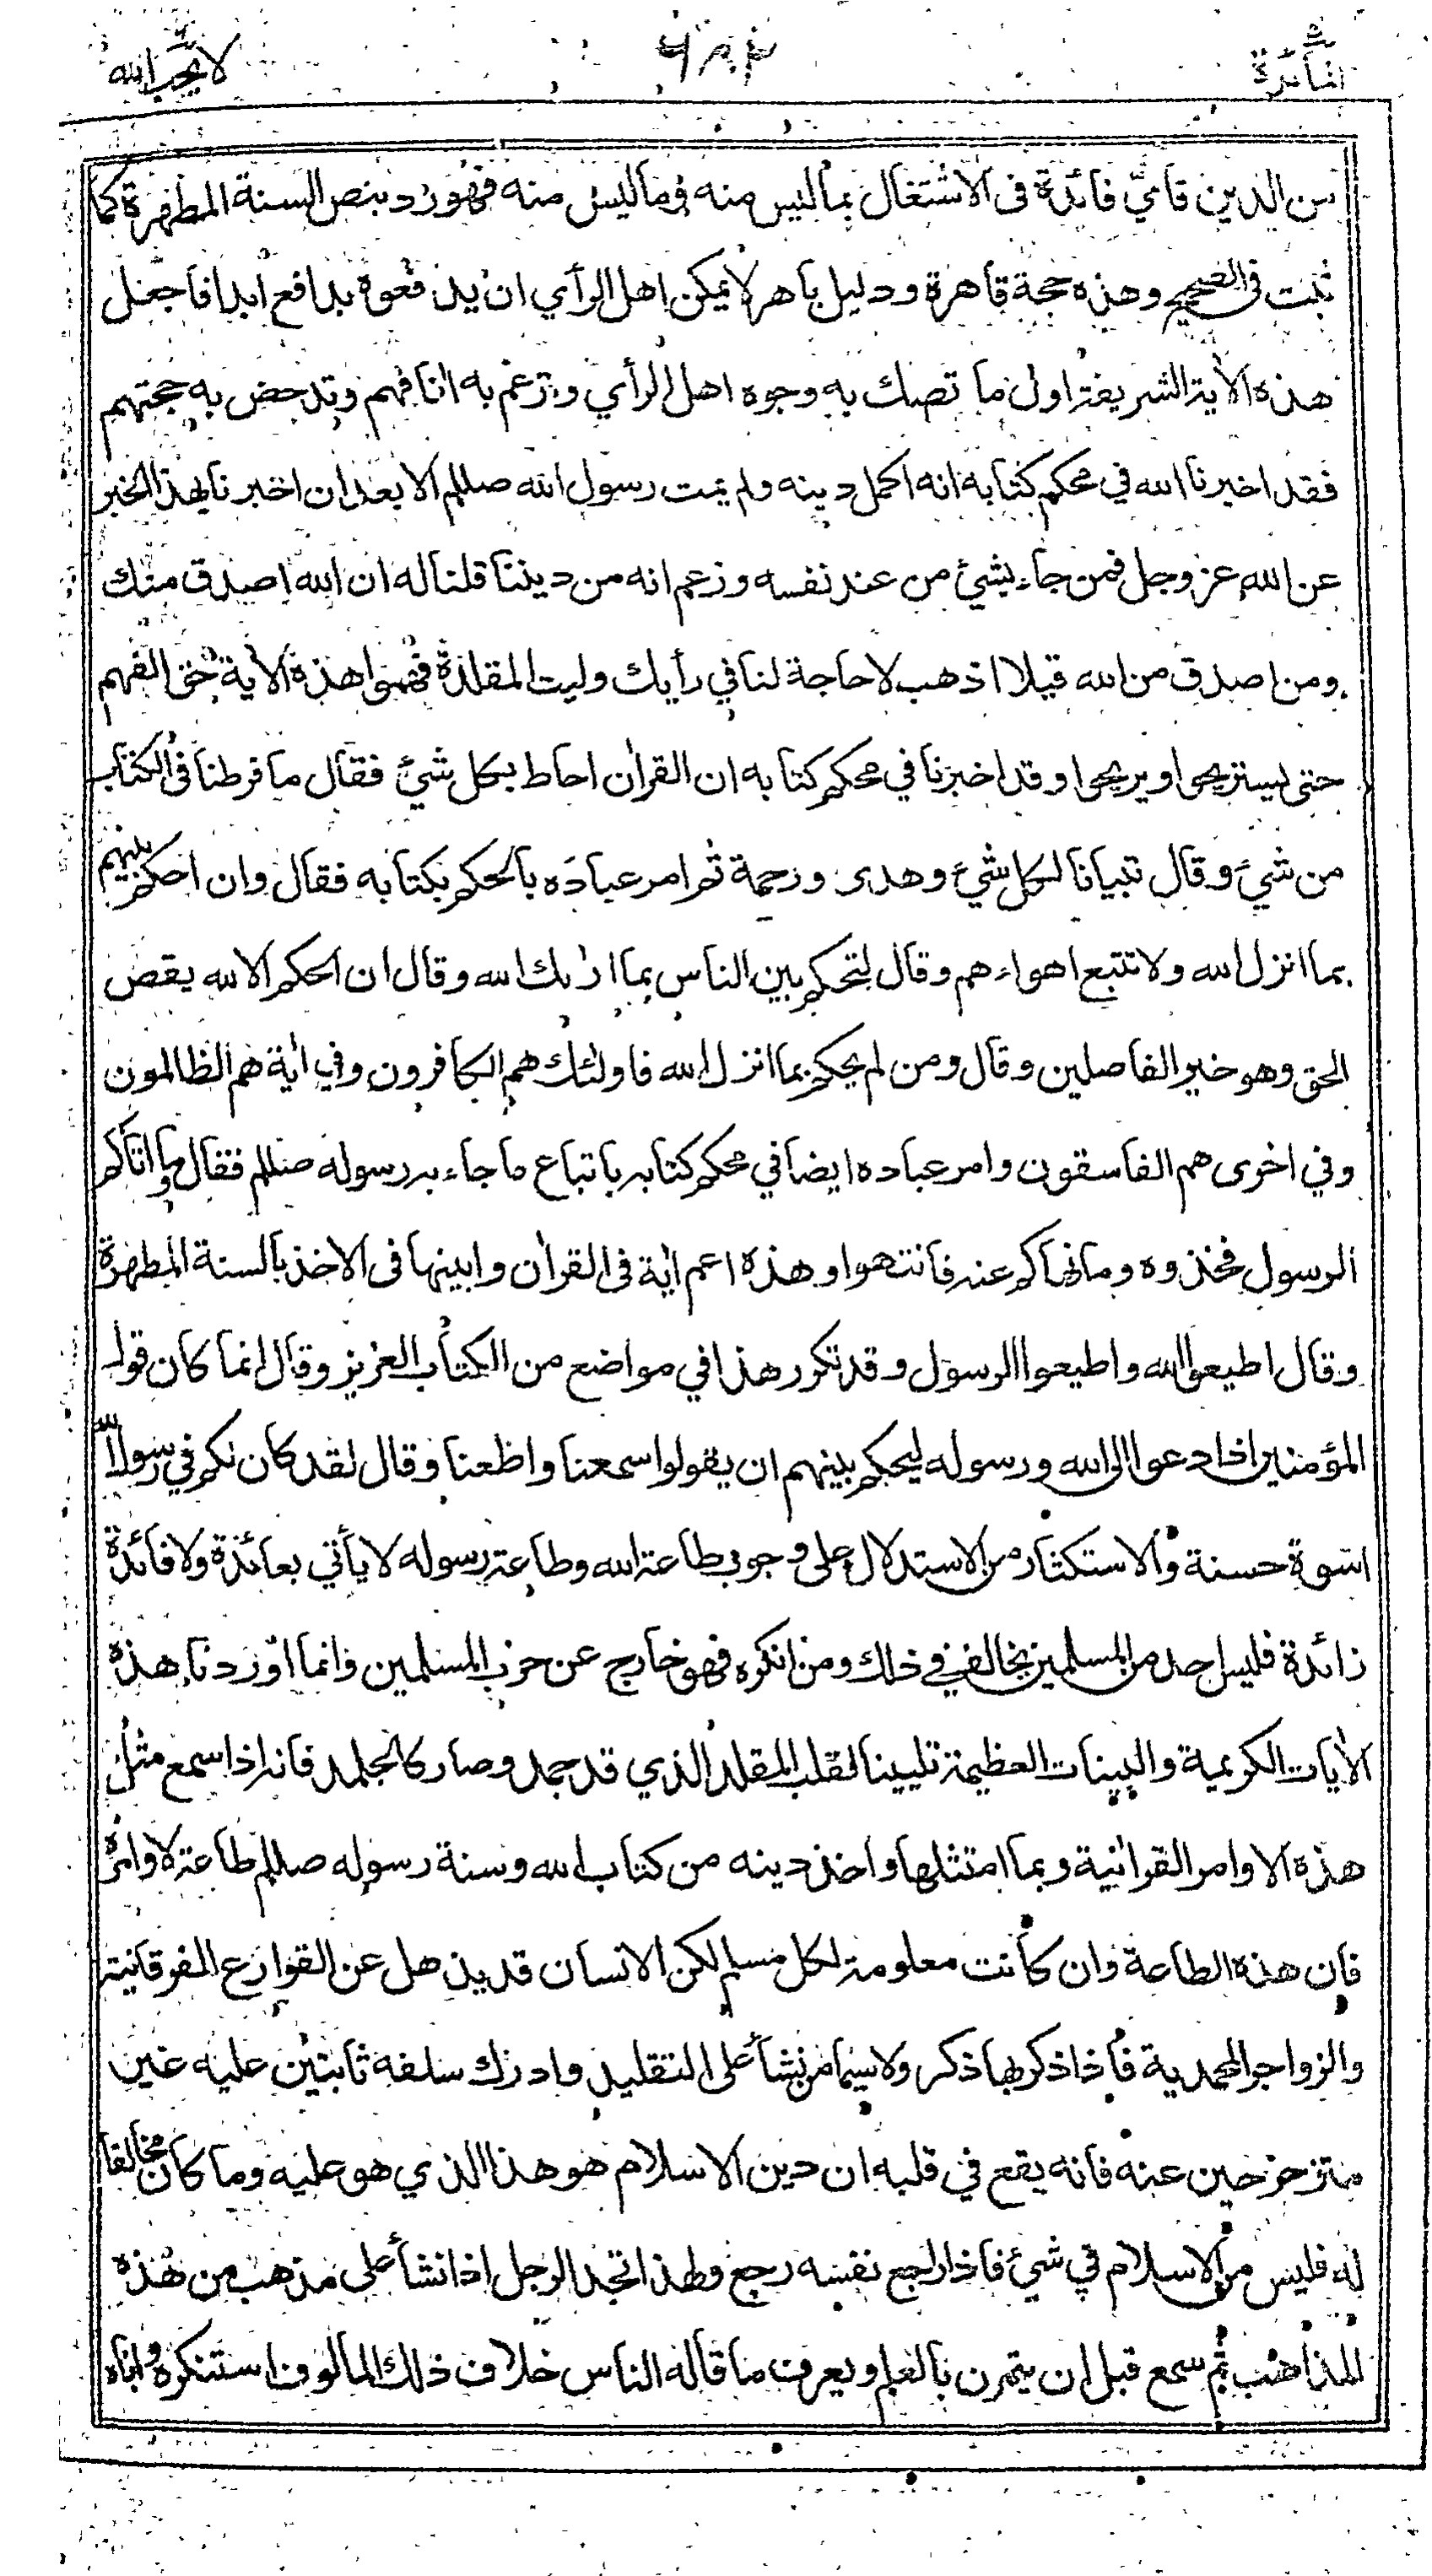 المائدة ٦٨٢ لا يحب الله
من الدين فأيّ فائدة فى الاشتغال بما ليس منه وما ليس منه فهو رد بنص السنة المطهرة كما
ثبت فى الصحيح وهذه حجة قاهرة ودليل باهر لا يمكن اهل الرأي ان يدفعوه بدافع ابدا فاجعل
هذه الآية الشريفة اول ما تصك به وجوه اهل الرأي وترغم به انافهم وتدحض به حجتهم
فقد اخبرنا الله في محكم كتابه انه اكمل دينه ولم يمت رسول الله صللم الا بعد ان اخبرنا بهذا الخبر
عن الله عز وجل فمن جاء بشئ من عند نفسه وزعم انه من ديننا قلنا له ان الله اصدق منك
ومن اصدق من الله قيلا اذهب لا حاجة لنا في رأيك وليت المقلدة فهموا هذة الآية حق الفهم
حتى يستريحوا ويريحوا وقد اخبرنا في محكم كتابه ان القرآن احاط بكل شئ فقال ما فرطنا فى الكتاب
من شئ وقال تبيانا لكل شئ وهدى ورحمة ثم امر عباده بالحكم بكتابه فقال وان احكم بينهم
بما انزل الله ولا تتبع اهواءهم وقال لتحكم بين الناس بما ارٰىك الله وقال ان الحكم الا لله يقص
الحق وهو خير الفاصلين وقال ومن لم يحكم بما انزل الله فاولئك هم الكافرون وفي آية هم الظالمون
وفي اخرى هم الفاسقون وامر عباده ايضا في محكم كتابه باتباع ما جاء به رسوله صللم فقال وما اتاكم
الرسول فخذوه وما نهاكم عنه فانتهوا وهذه اعم آية فى القرآن وابينها فى الاخذ بالسنة المطهرة
وقال اطيعوا الله واطيعوا الرسول وقد تكرر هذا في مواضع من الكتاب العزيز وقال انما كان قول
المؤمنين اذا دعوا الى الله ورسوله ليحكم بينهم ان يقولوا سمعنا واطعنا وقال لقد كان لكم في رسول الله
اسوة حسنة والاستكثار من الاستدلال على وجوب طاعة الله وطاعة رسوله لا يأتي بعائدة ولا فائدة
زائدة فليس احد من المسلمين يخالف في ذلك ومن انكره فهو خارج عن حزب المسلمين وانما اوردنا هذه
الآيات الكريمة والبينات العظيمة تليينا لقلب المقلد الذي قد جمد وصار كالجلمد فانه اذا سمع مثل
هذه الاوامر القرانية ربما امتثلها واخذ دينه من كتاب الله وسنة رسوله صللم طاعة لاوامره
فان هذه الطاعة وان كانت معلومة لكل مسلم لكن الانسان قد يذهل عن القوارع الفرقانية
والزواجر المحمدية فاذا ذكر بها ذكر ولا سيما من نشأ على التقليد وادرك سلفه ثابتين عليه غير
متزحزحين عنه فانه يقع في قلبه ان دين الاسلام هو هذا الذي هو عليه وما كان مخالفا
له فليس من الاسلام في شئ فاذا راجع نفسه رجع ولهذا تجد الرجل اذا نشأ على مذهب من هذه
المذاهب ثم سمع قبل ان يتمرن بالعلم ويعرف ما قاله الناس خلاف ذلك المالوف استنكره واباه